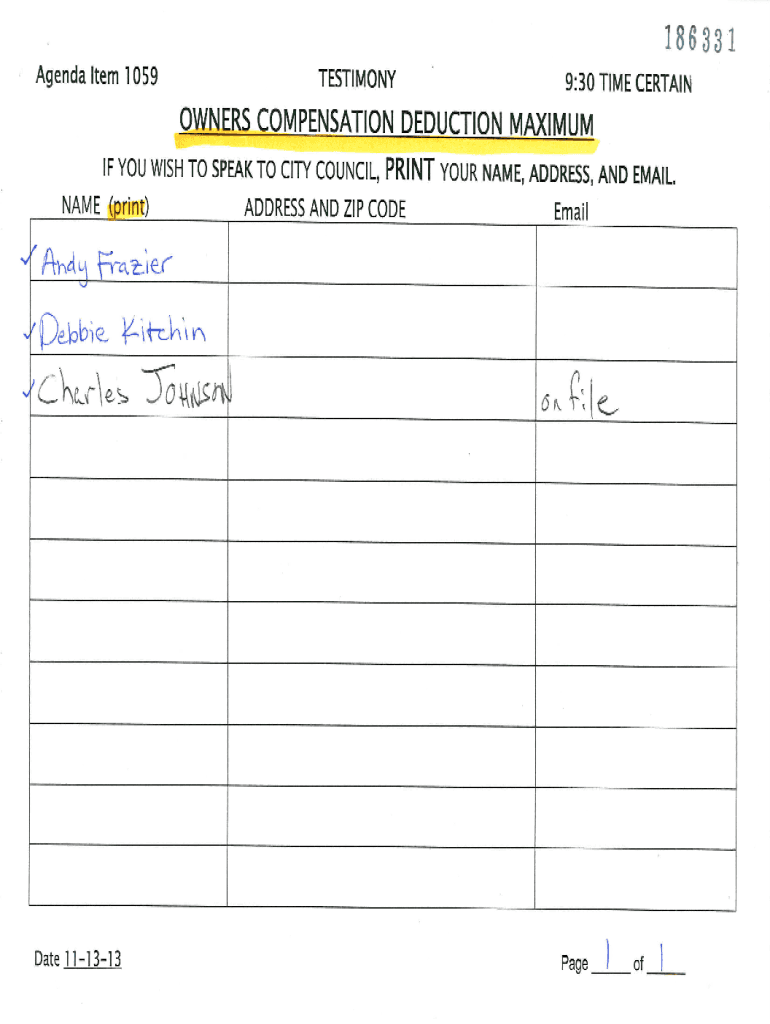 186331
Agenda Item 1059 TESTIMONY 9:30 TIME CERTAIN
OWNERS COMPENSATION DEDUCTION MAXIMUM
IF YOU WISH TO SPEAK TO CITY COUNCIL, PRINT YOUR NAME, ADDRESS, AND EMAIL.
NAME (print) ADDRESS AND ZIP CODE Email
✓ Andy Frazier
✓ Debbie Kitchin
✓ Charles JOHNSON on file
Date 11-13-13 Page 1 of 1